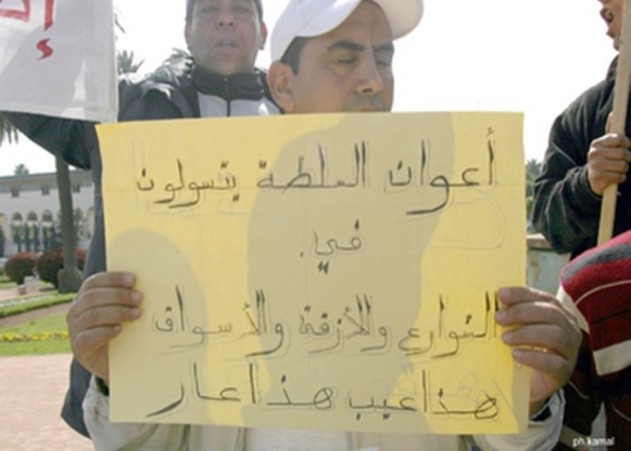 أعوان السلطة يتسولون
في
الشوارع والأزقة والأسواق
هذا عيب هذا عار
ph.kamal